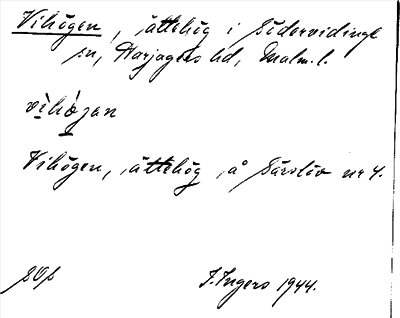 Vihögen, ättehög i Södervidinge
sn, Harjagers hd, Malm. l.
vìhö̀gan
Vihögen, ättehög, å Särslöv nr 4.
I. Ingers 1944.